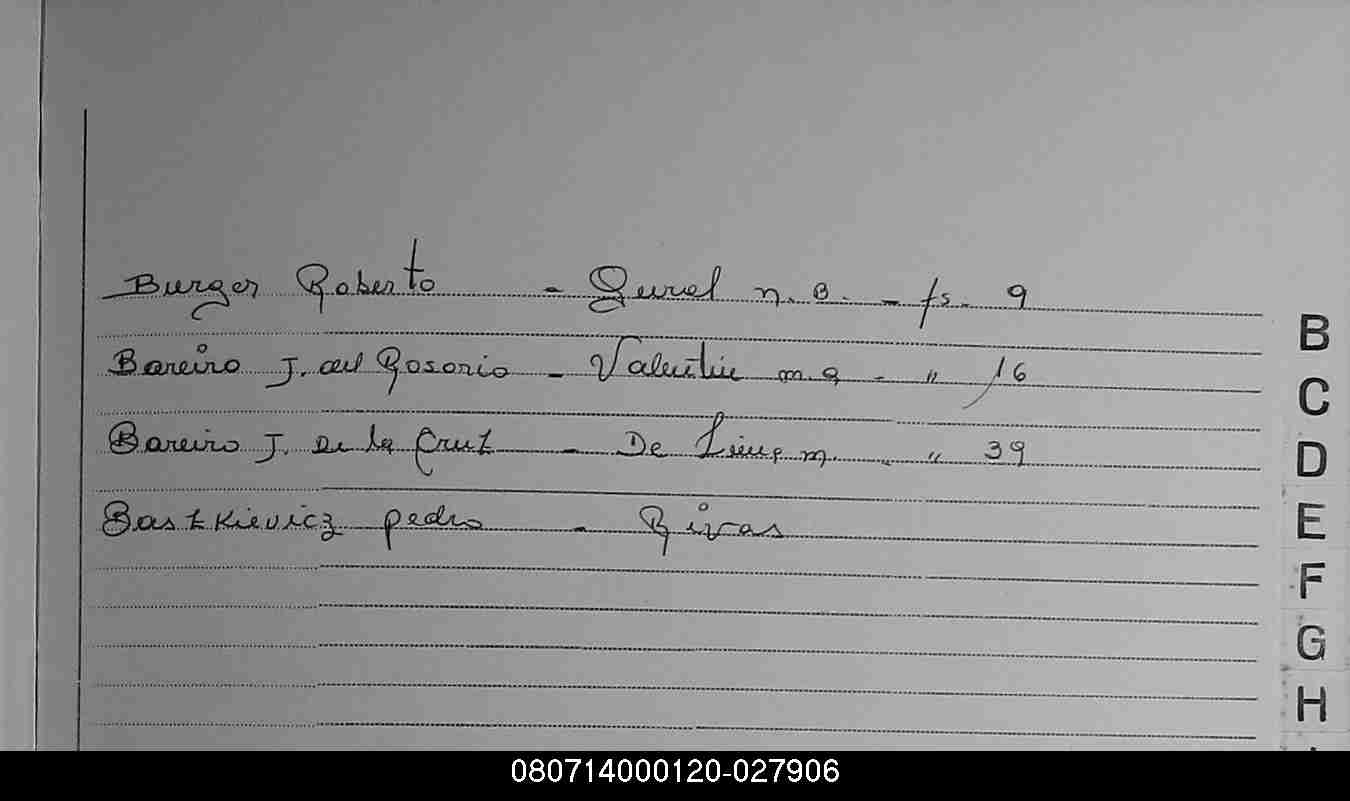 Burger Roberto - n. B. - fs. 9
Bareiro J. del Rosario - Valentin m. a - " 16
Bareiro J. de la Cruz - De m. " 39
Bastkievicz pedro - Rivas
B
C
D
E
F
G
H
080714000120-027906